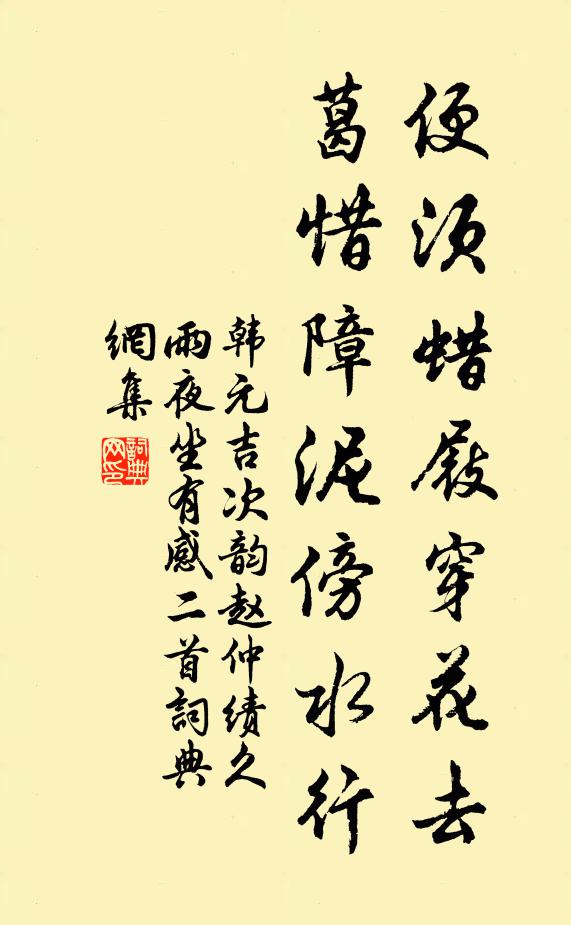 便须蜡屐穿花去
葛惜障泥傍水行
韩元吉次韵赵仲绩久
雨夜坐有感二首詞典
網集
詞典
网印